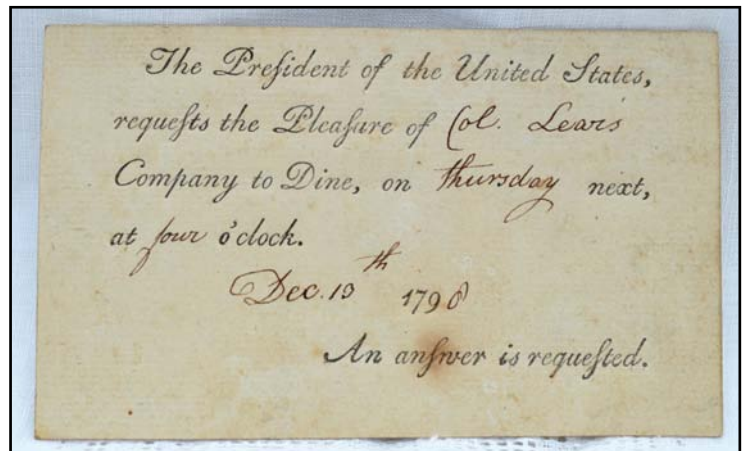 The Preſident of the United States,
requeſts the Pleaſure of Col. Lears
Company to Dine, on thursday next,
at four o'clock.
Dec. 19th 1798
An anſwer is requeſted.